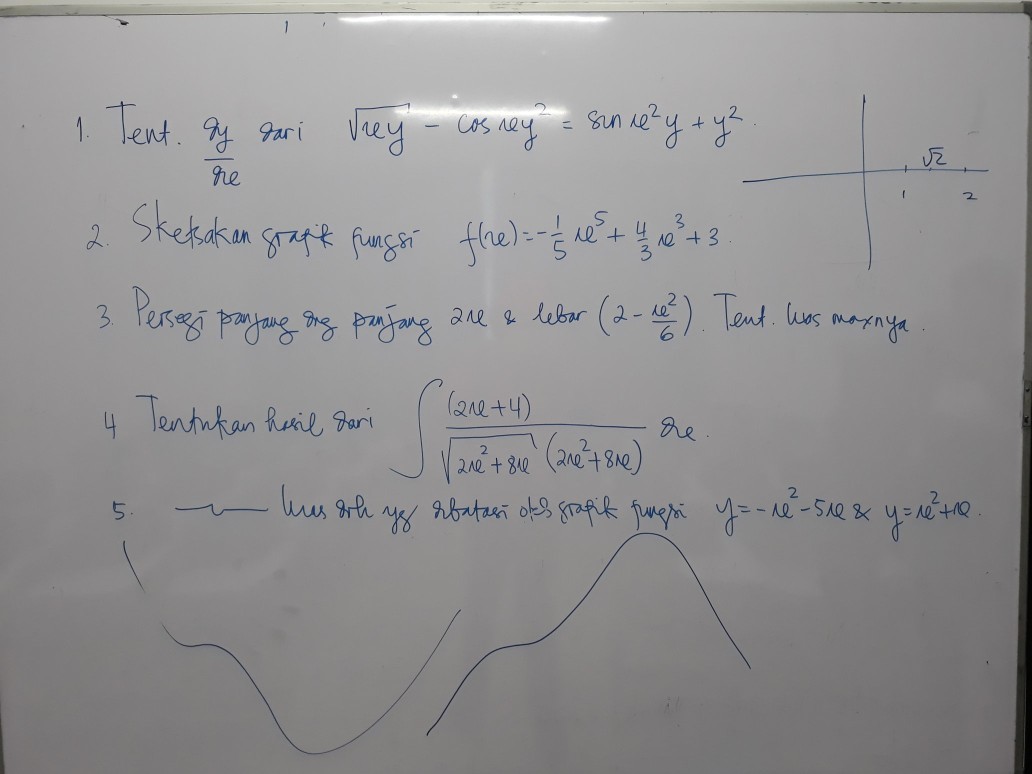 1. Tent. dy/dx dari √xy - cos xy² = sin x²y + y².
√2
1 2
2. Sketsakan grafik fungsi f(x) = -1/5 x⁵ + 4/3 x³ + 3.
3. Persegi panjang dng panjang 2x & lebar (2 - x²/6). Tent. luas maxnya.
4 Tentukan hasil dari ∫ (2x+4) / √2x²+8x (2x²+8x) dx.
5. luas drh yg dbatasi oleh grafik fungsi y = -x² - 5x & y = x² + x.